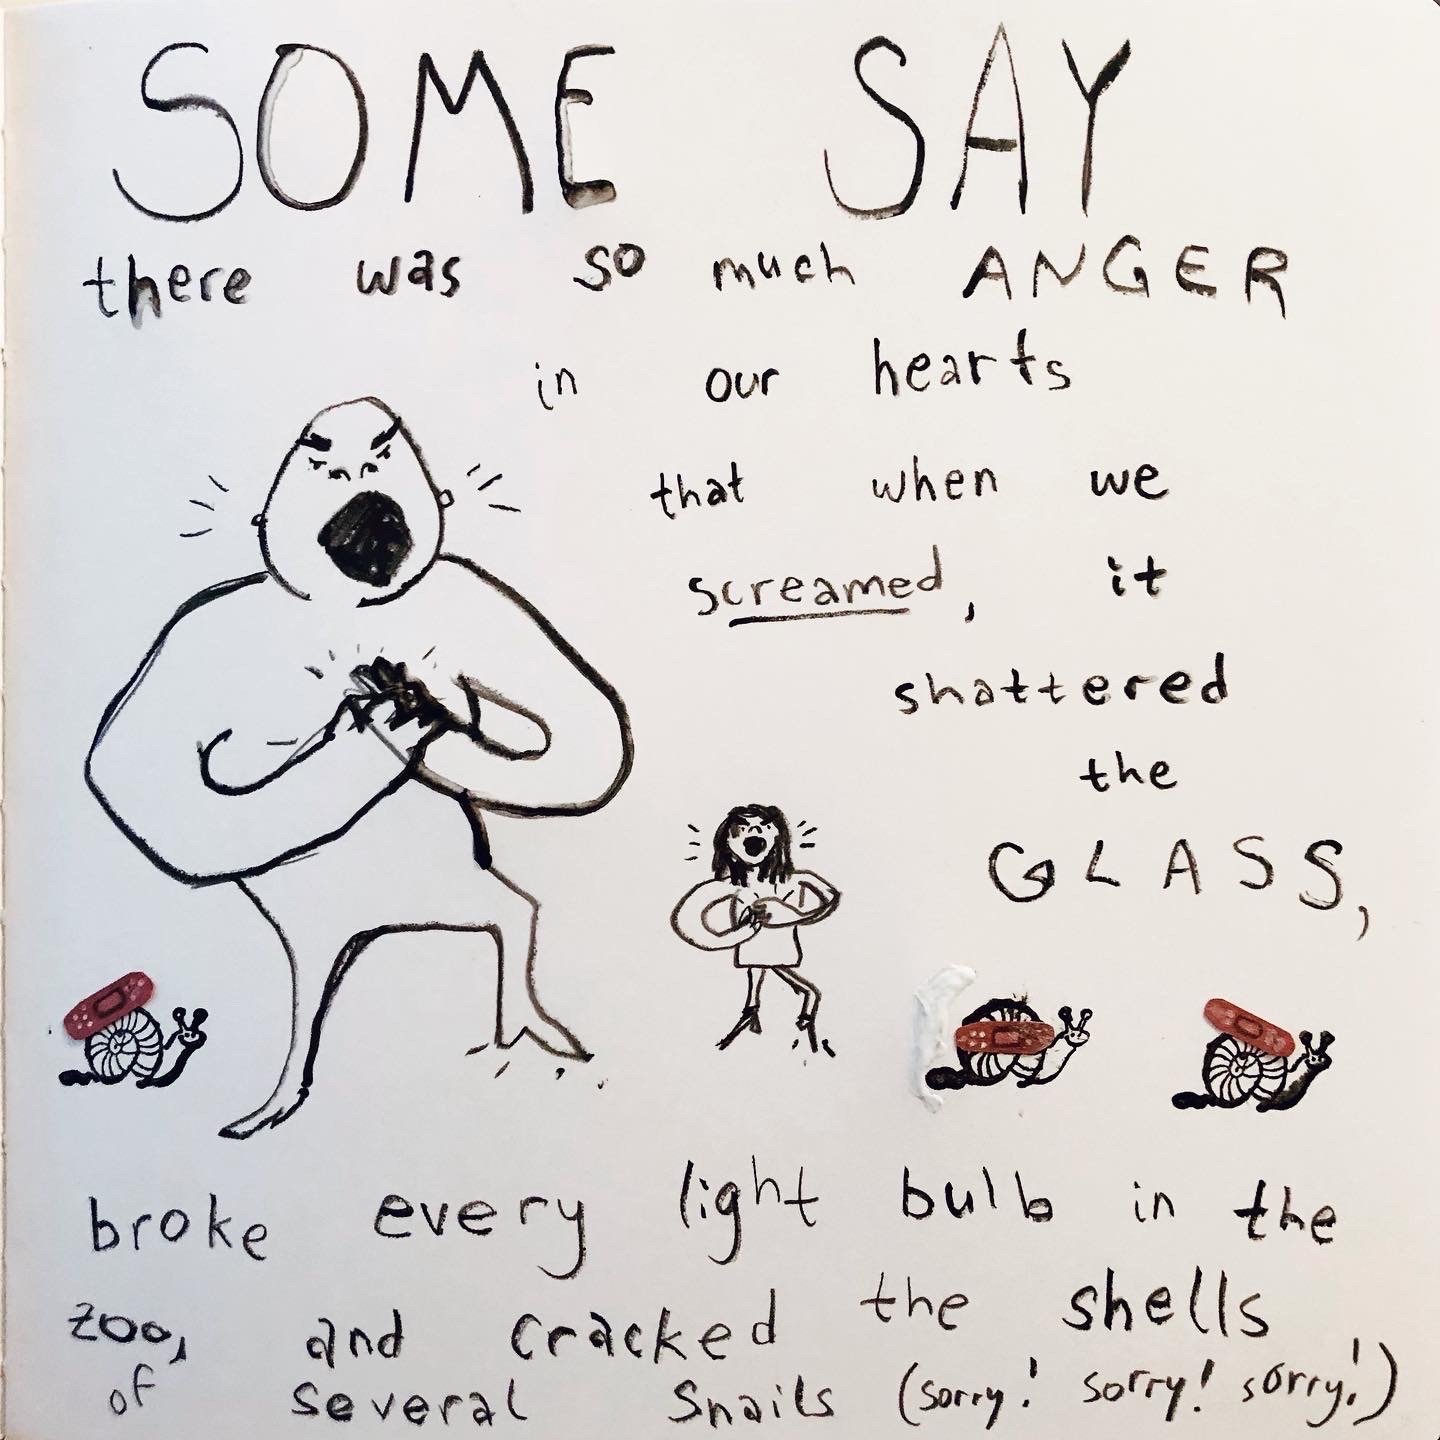 SOME SAY
there was so much ANGER
in our hearts
that when we
screamed, it
shattered
the
GLASS,
broke every light bulb in the
zoo, and cracked the shells
of several snails (sorry! sorry! sorry!)